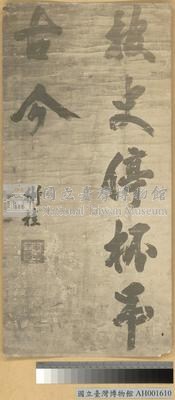 按史停杯弔
古今
國立臺灣博物館
National Taiwan Museum
國立臺灣博物館 AH001610